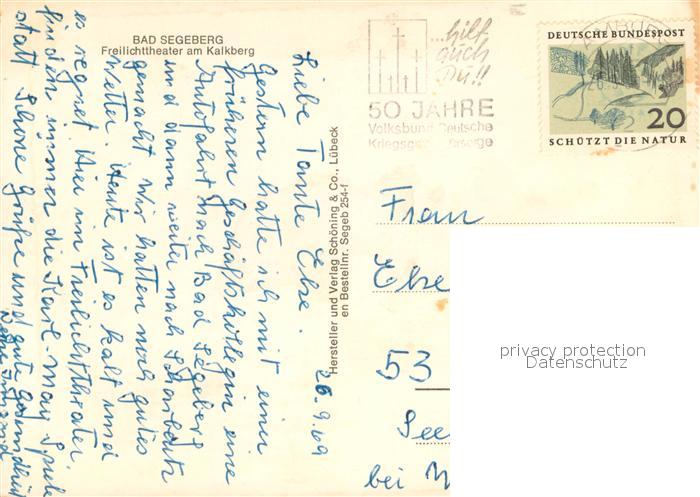 BAD SEGEBERG
Freilichttheater am Kalkberg
26.9.69
Liebe Tante Else.
Gestern hatte ich mit einer
früheren Geschäftskollegin eine
Autofahrt nach Bad Segeberg
und dann weiter nach Scharbeutz
gemacht. Wir hatten noch gutes
Wetter. Heute ist es kalt und
es regnet. Hier im Freilichttheater
finden immer die Karl-May Spiele
statt. Schöne Grüße und gute Gesundheit
Deine
Hersteller und Verlag Schöning & Co., Lübeck
en Bestellnr. Segeb 254-f
...hilf
auch
Du!!
50 JAHRE
Volksbund Deutsche
DEUTSCHE BUNDESPOST
20
SCHÜTZT DIE NATUR
Frau
Else
53
See
bei
privacy protection
Datenschutz